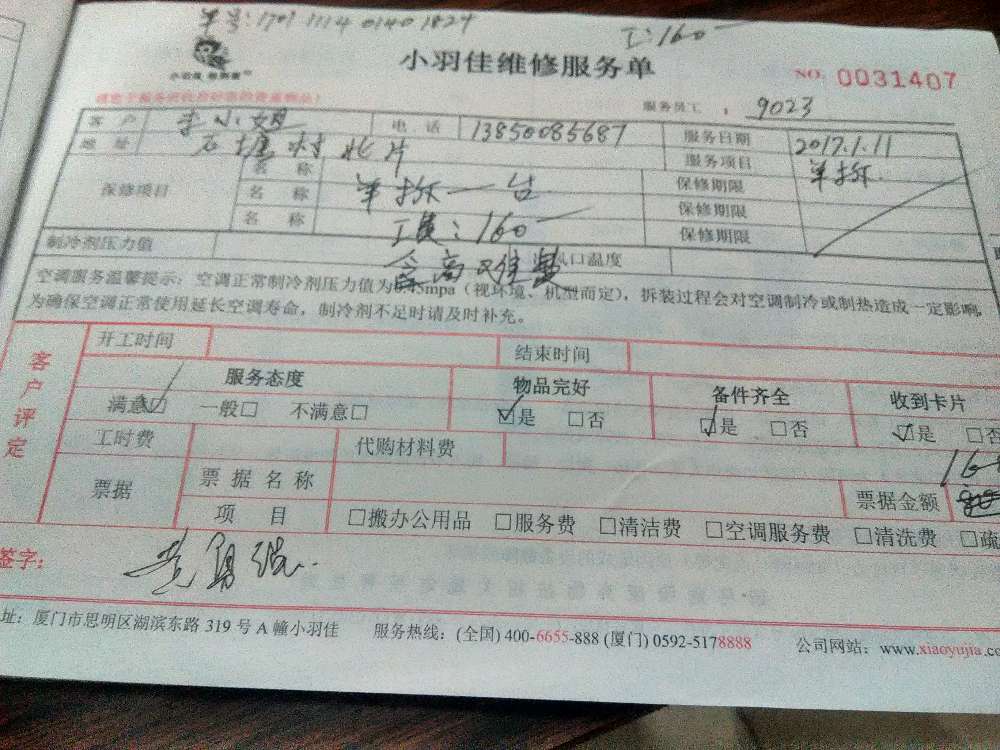 单号:1701 1114 0140 1824
工:160
小羽佳维修服务单
NO. 0031407
服务员工 : 9023
客 户 李小姐 电 话 13850085687 服务日期 2017.1.11
地 址 石塘村北片 服务项目 单拆
保修项目 名 称 单拆一台 保修期限
名 称 保修期限
名 称 工费:160 保修期限
制冷剂压力值 风口温度
含高
空调服务温馨提示:空调正常制冷剂压力值为0.45mpa(视环境、机型而定),拆装过程会对空调制冷或制热造成一定影响,
为确保空调正常使用延长空调寿命,制冷剂不足时请及时补充。
客户评定
开工时间 结束时间
服务态度 物品完好 备件齐全 收到卡片
满意☑ 一般□ 不满意□ ☑是 □否 ☑是 □否 ☑是 □否
工时费 代购材料费
票据 票据名称 票据金额 160
项 目 □搬办公用品 □服务费 □清洁费 □空调服务费 □清洗费 □疏
签字:
址:厦门市思明区湖滨东路 319 号 A 幢小羽佳 服务热线:(全国) 400-6655-888 (厦门) 0592-5178888 公司网站:www.xiaoyujia.co